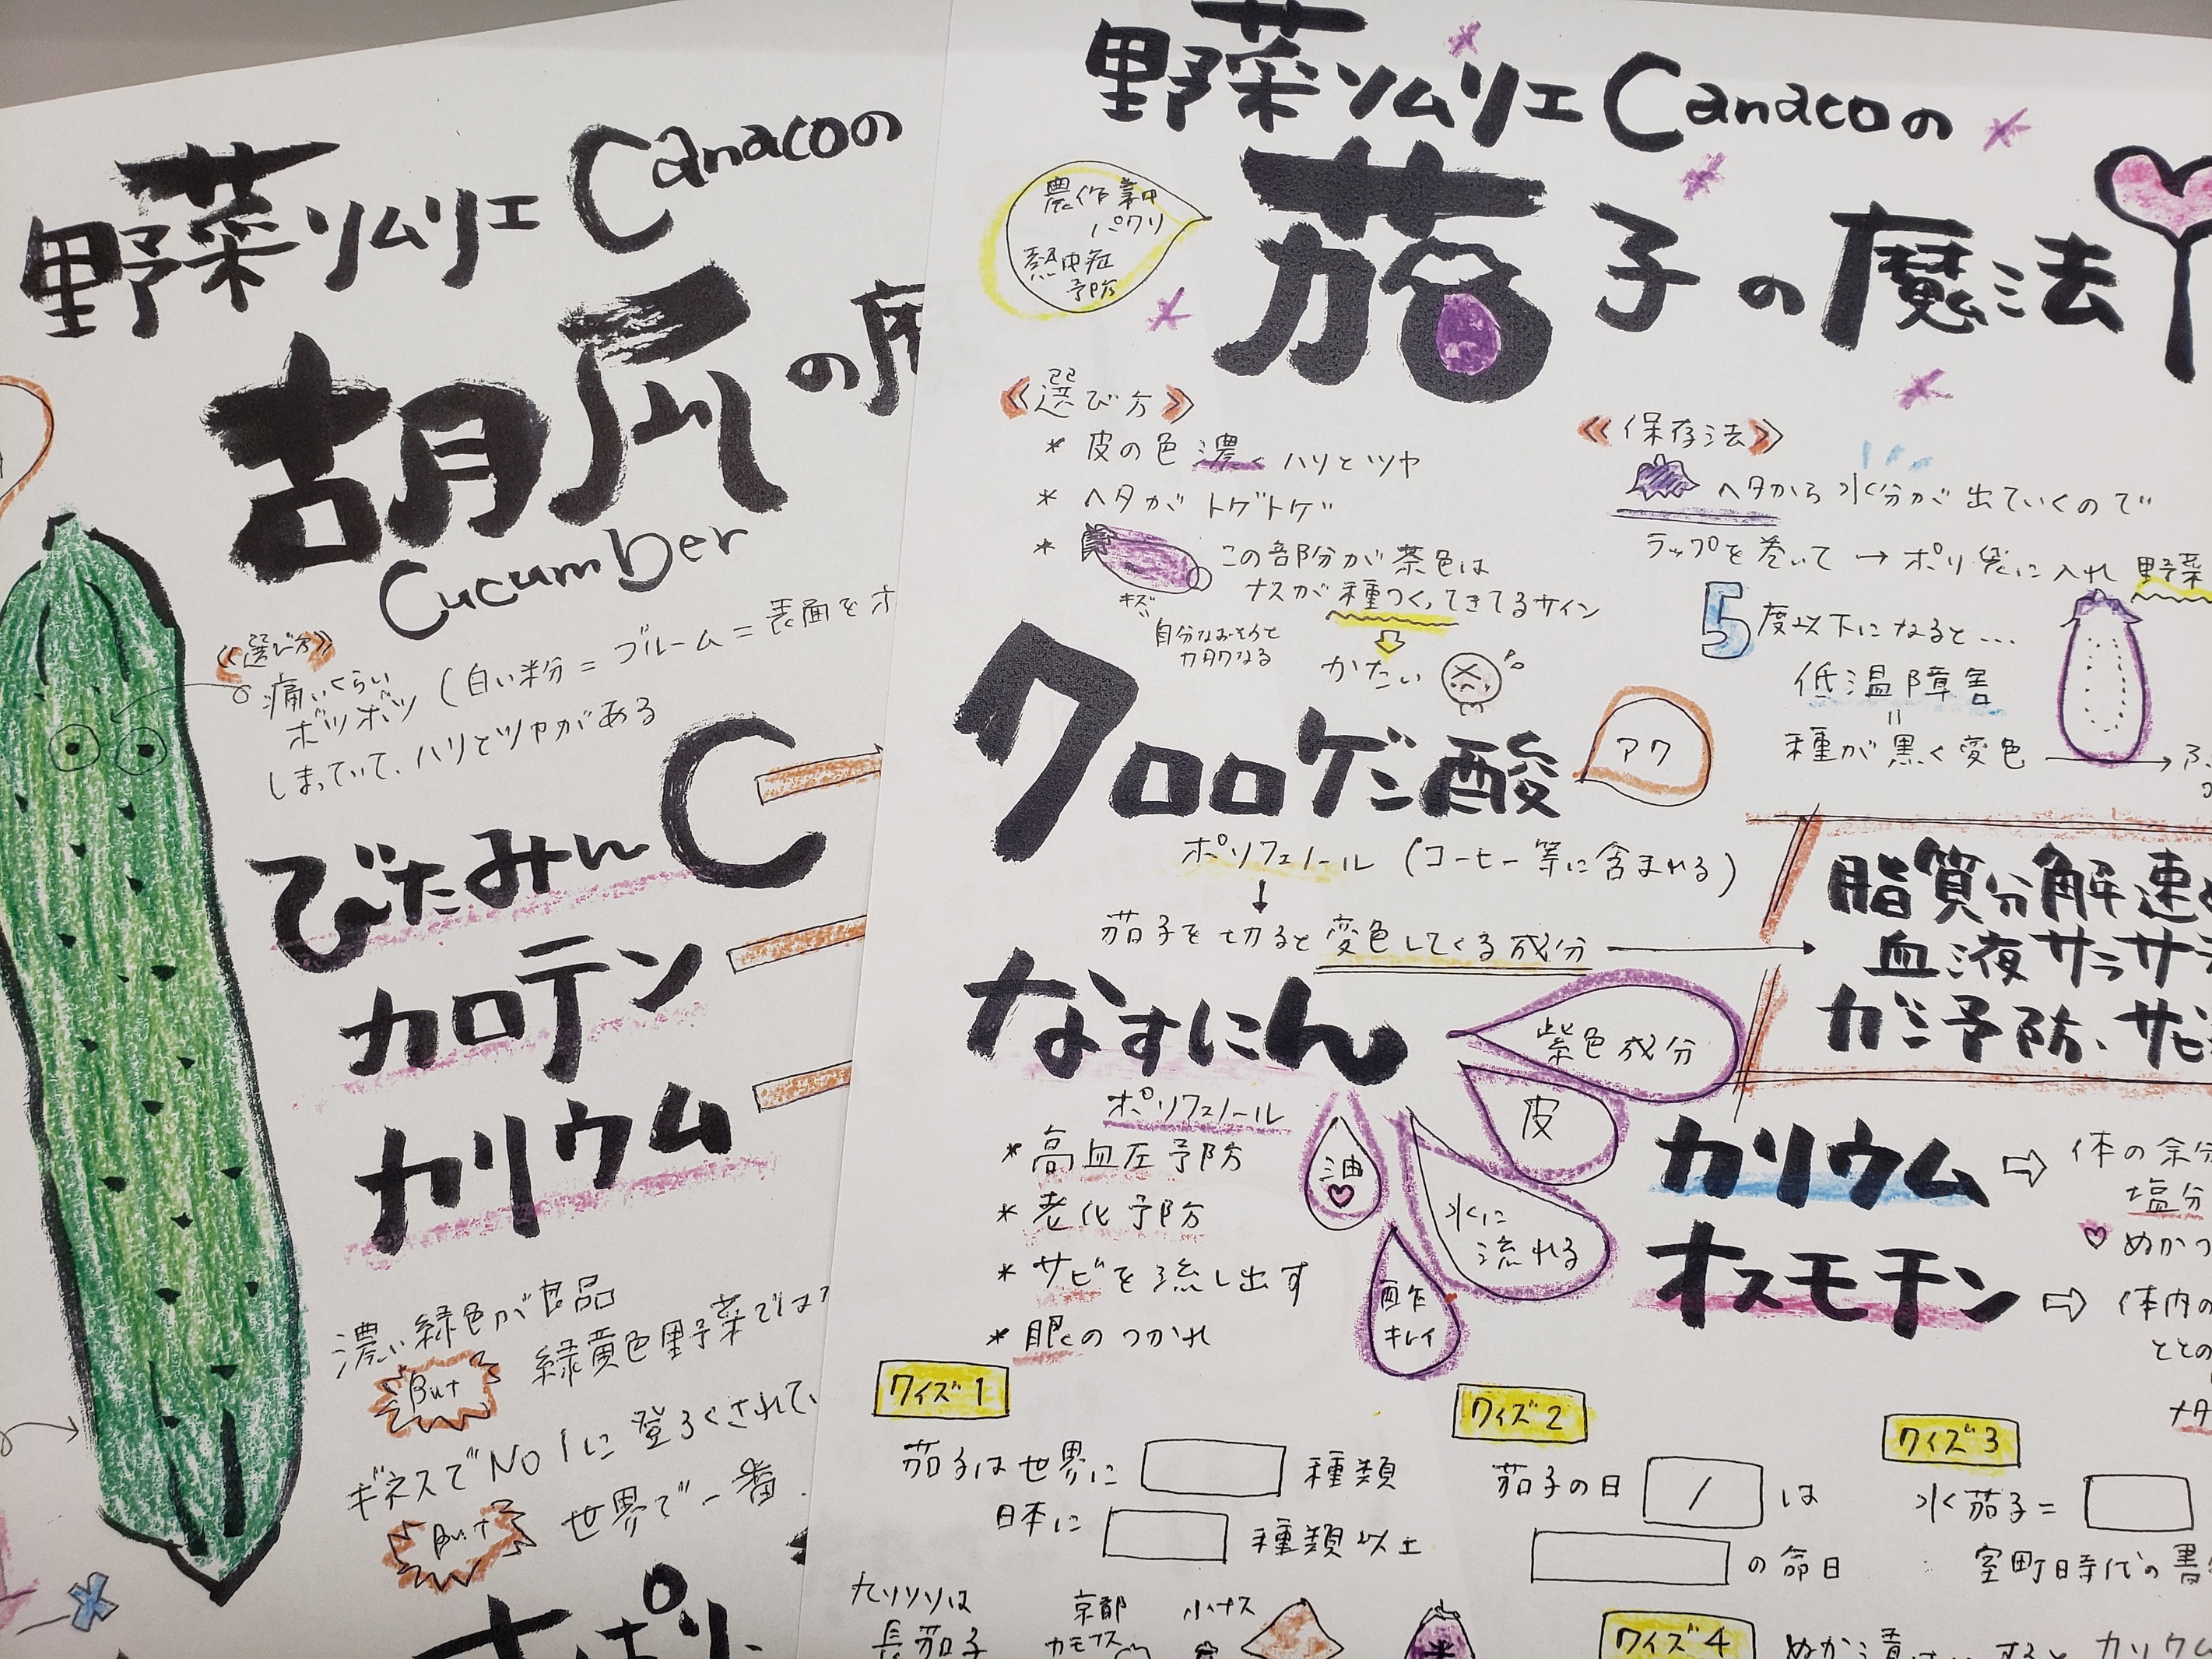 野菜ソムリエCanacoの
胡瓜の魔
Cucumber
《選び方》
痛いくらい
ボツボツ (白い粉=ブルーム=表面をオ
しまっていて、ハリとツヤがある
びたみんC
カロテン
カリウム
濃い緑色が良品
But 緑黄色野菜では
ギネスでNo1に登ろくされてい
But 世界で一番
野菜ソムリエCanacoの
茄子の魔法
農作業中
パクリ
熱中症
予防
《選び方》
* 皮の色濃く ハリとツヤ
* ヘタがトゲトゲ
* この部分が茶色は
ナスが種つくってきてるサイン
キズ
自分なおそうと
カタクなる
かたい
《保存法》
ヘタから水分が出ていくので
ラップを巻いて → ポリ袋に入れ 野菜
5度以下になると…
低温障害
=
種が黒く変色
クロロゲン酸
アク
ポリフェノール (コーヒー等に含まれる)
茄子を切ると変色してくる成分
脂質分解速め
血液サラサラ
ガン予防、サビ
なすにん
ポリフェノール
* 高血圧予防
* 老化予防
* サビを流し出す
* 眼のつかれ
紫色成分
皮
水に
流れる
油
酢
キレイ
カリウム ⇨ 体の余分
塩分
ぬかつ
オスモチン ⇨ 体内の
ととの
メタ
クイズ1
茄子は世界に 種類
日本に 種類以上
クイズ2
茄子の日 / は
の命日
クイズ3
水茄子=
室町時代の書
九州は
長茄子
京都
カモナス
小ナス
クイズ4
ぬか漬けにするとカリウム